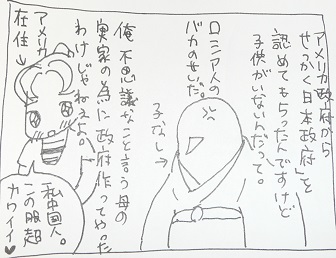 アメリカ政府から
せっかく「日本政府」と
認めてもらったんですけど
子供がいないんだって。
ロシア人の
バカのせいだ。
子なし→
俺不思議なこと言う母の
実家の為に政府作ってやった
わけじゃねえよ。
アメリカ
在住↓
私中国人。
この服超
カワイイ♥